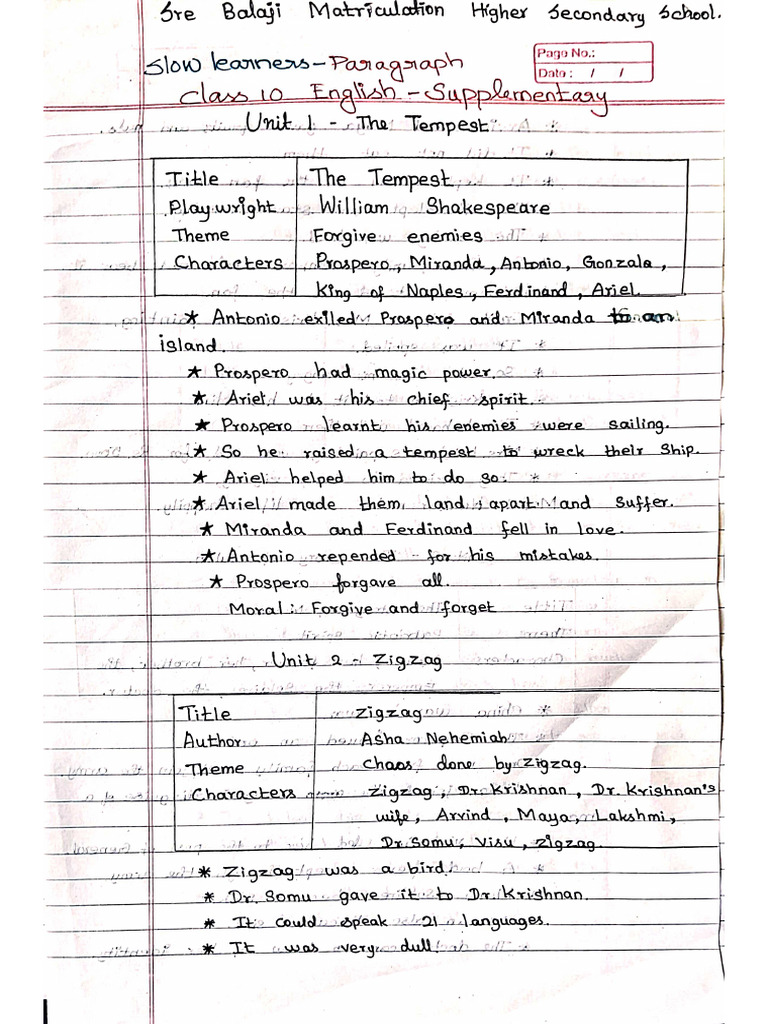 Sre Balaji Matriculation Higher Secondary School.
Slow learners - Paragraph
Page No.:
Date : / /
Class 10 English - Supplementary
Unit 1 - The Tempest
Title The Tempest
Playwright William Shakespeare
Theme Forgive enemies
Characters Prospero, Miranda, Antonio, Gonzala,
King of Naples, Ferdinand, Ariel.
* Antonio exiled Prospero and Miranda to an
island.
* Prospero had magic power.
* Ariel was his chief spirit.
* Prospero learnt his enemies were sailing.
* So he raised a tempest to wreck their ship.
* Ariel helped him to do so.
* Ariel made them land apart and suffer.
* Miranda and Ferdinand fell in love.
* Antonio repended for his mistakes.
* Prospero forgave all.
Moral : Forgive and forget
Unit 2 - Zigzag
Title Zigzag
Author Asha Nehemiah
Theme Chaos done by Zigzag.
Characters Zigzag, Dr. Krishnan, Dr. Krishnan's
wife, Arvind, Maya, Lakshmi,
Dr. Somu, Visu, Zigzag.
* Zigzag was a bird.
* Dr. Somu gave it to Dr. Krishnan.
* It could speak 21 languages.
* It was very dull.